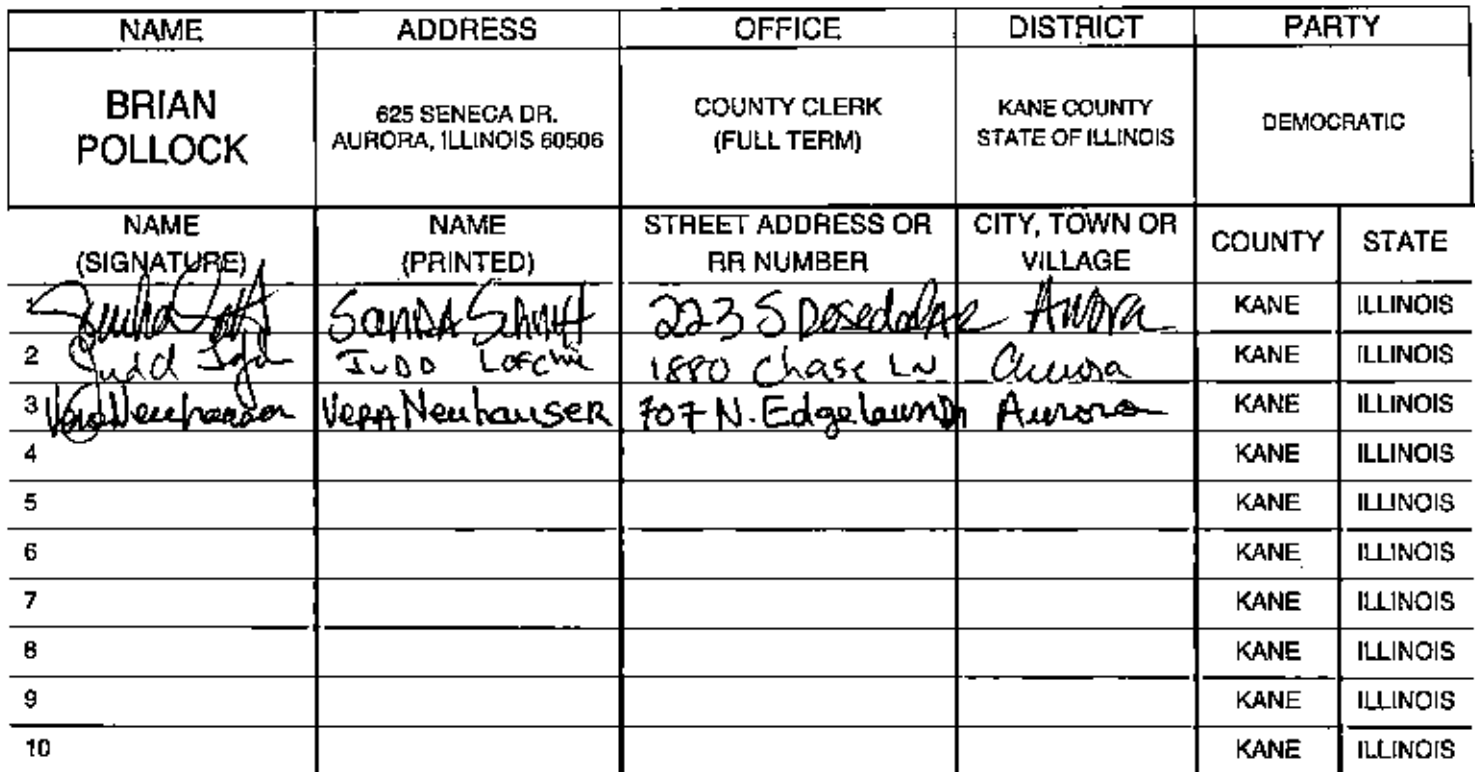 NAME ADDRESS OFFICE DISTRICT PARTY
BRIAN POLLOCK 625 SENECA DR. AURORA, ILLINOIS 60506 COUNTY CLERK (FULL TERM) KANE COUNTY STATE OF ILLINOIS DEMOCRATIC
NAME (SIGNATURE) NAME (PRINTED) STREET ADDRESS OR RR NUMBER CITY, TOWN OR VILLAGE COUNTY STATE
1 223 S Aurora KANE ILLINOIS
2 Judd JUDD 1880 Chase LN Aurora KANE ILLINOIS
3 Vera Neuhauser VERA Neuhauser 707 N. Edgelawn Dr Aurora KANE ILLINOIS
4 KANE ILLINOIS
5 KANE ILLINOIS
6 KANE ILLINOIS
7 KANE ILLINOIS
8 KANE ILLINOIS
9 KANE ILLINOIS
10 KANE ILLINOIS